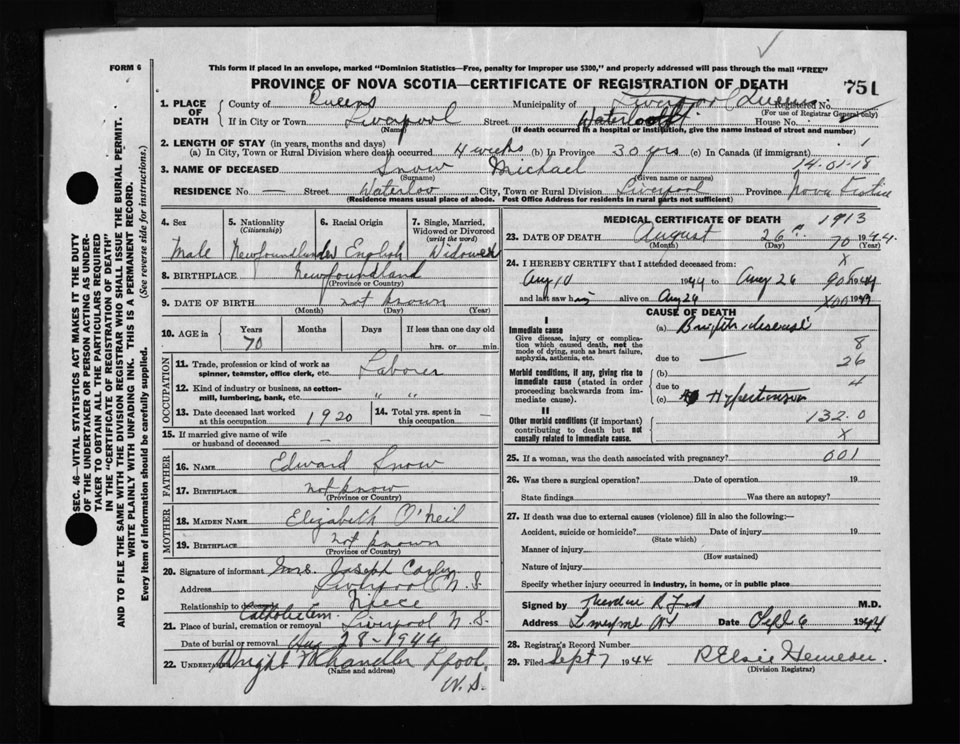 FORM 6
This form if placed in an envelope, marked "Dominion Statistics—Free, penalty for improper use $300," and properly addressed will pass through the mail "FREE"
PROVINCE OF NOVA SCOTIA—CERTIFICATE OF REGISTRATION OF DEATH
751
SEC. 46—VITAL STATISTICS ACT MAKES IT THE DUTY
OF THE UNDERTAKER OR PERSON ACTING AS UNDER-
TAKER TO OBTAIN ALL THE PARTICULARS REQUIRED
IN THE "CERTIFICATE OF REGISTRATION OF DEATH"
AND TO FILE THE SAME WITH THE DIVISION REGISTRAR WHO SHALL ISSUE THE BURIAL PERMIT.
WRITE PLAINLY WITH UNFADING INK. THIS IS A PERMANENT RECORD.
Every item of information should be carefully supplied. (See reverse side for instructions.)
1. PLACE OF DEATH
County of Queens Municipality of Liverpool Queens Registered No.
(For use of Registrar General only)
If in City or Town Liverpool Street Waterloo St. House No.
(Name) (If death occurred in a hospital or institution, give the name instead of street and number)
2. LENGTH OF STAY (in years, months and days)
(a) In City, Town or Rural Division where death occurred 4 weeks (b) In Province 30 yrs (c) In Canada (if immigrant) 1
14-01-18
3. NAME OF DECEASED Snow Michael
(Surname) (Given name or names)
RESIDENCE No. — Street Waterloo City, Town or Rural Division Liverpool Province Nova Scotia
(Residence means usual place of abode. Post Office Address for residents in rural parts not sufficient)
4. Sex 5. Nationality (Citizenship) 6. Racial Origin 7. Single, Married, Widowed or Divorced (write the word)
Male Newfoundlander English Widowed
8. BIRTHPLACE Newfoundland
(Province or Country)
9. DATE OF BIRTH not known
(Month) (Day) (Year)
10. AGE in Years Months Days If less than one day old
70 hrs. or min.
OCCUPATION
11. Trade, profession or kind of work as spinner, teamster, office clerk, etc. Laborer
12. Kind of industry or business, as cotton-mill, lumbering, bank, etc. " "
13. Date deceased last worked at this occupation 1920 14. Total yrs. spent in this occupation —
15. If married give name of wife or husband of deceased —
FATHER
16. NAME Edward Snow
17. BIRTHPLACE not know
(Province or Country)
MOTHER
18. MAIDEN NAME Elizabeth O'Neil
19. BIRTHPLACE not known
(Province or Country)
20. Signature of informant Mrs. Joseph
Address Liverpool N.S.
Relationship to Niece
Catholic Cem.
21. Place of burial, cremation or removal Liverpool N.S.
Date of burial or removal Aug 28-1944
22. UNDERTAKER Wright Chandler Lpool.
(Name and address)
N.S.
MEDICAL CERTIFICATE OF DEATH
1913
23. DATE OF DEATH August 26th 70 1944.
(Month) (Day) (Year)
24. I HEREBY CERTIFY that I attended deceased from: X
Aug 10 1944 to Aug 26 1944
and last saw him alive on Aug 26 X00 194
CAUSE OF DEATH
I
Immediate cause (a) Bright's disease
Give disease, injury or complication which caused death, not the mode of dying, such as heart failure, asphyxia, asthenia, etc.
8
due to — 26
Morbid conditions, if any, giving rise to immediate cause (stated in order proceeding backwards from immediate cause). (b)
due to 4
(c) Hypertension
II
Other morbid conditions (if important) contributing to death but not causally related to immediate cause.
132.0
X
25. If a woman, was the death associated with pregnancy? 001
26. Was there a surgical operation? Date of operation 19
State findings Was there an autopsy?
27. If death was due to external causes (violence) fill in also the following:—
Accident, suicide or homicide? Date of injury 19
(State which)
Manner of injury
(How sustained)
Nature of injury
Specify whether injury occurred in industry, in home, or in public place
Signed by Theodore R Ford M.D.
Address Date Sept 6 1944
28. Registrar's Record Number
29. Filed Sept 7 1944 R Elsie
(Division Registrar)